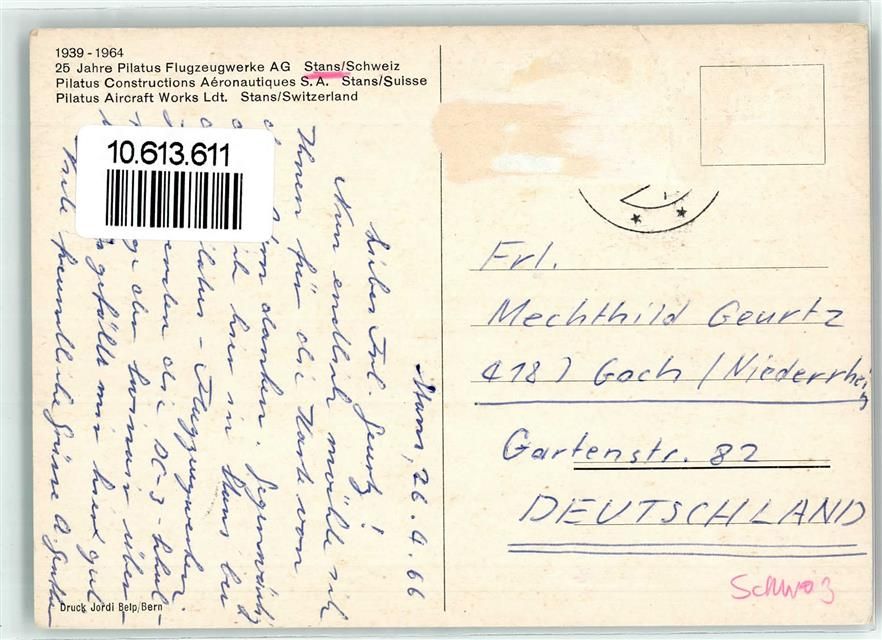 1939 - 1964
25 Jahre Pilatus Flugzeugwerke AG Stans/Schweiz
Pilatus Constructions Aéronautiques S.A. Stans/Suisse
Pilatus Aircraft Works Ldt. Stans/Switzerland
10.613.611
Stans, 26.4.66
Liebes Frl. Geurtz!
Nun endlich möchte ich
Ihnen für die Karte von
danken. Gegenwärtig
ich hier in Stans bei
Pilatus - Flugzeugwerken.
die DC-3-
über-
gefällt mir hier gut
Viele freundliche Grüsse
Druck Jordi Belp/Bern
Frl.
Mechthild Geurtz
418) Goch / Niederrhein
Gartenstr. 82
DEUTSCHLAND
Schwoz